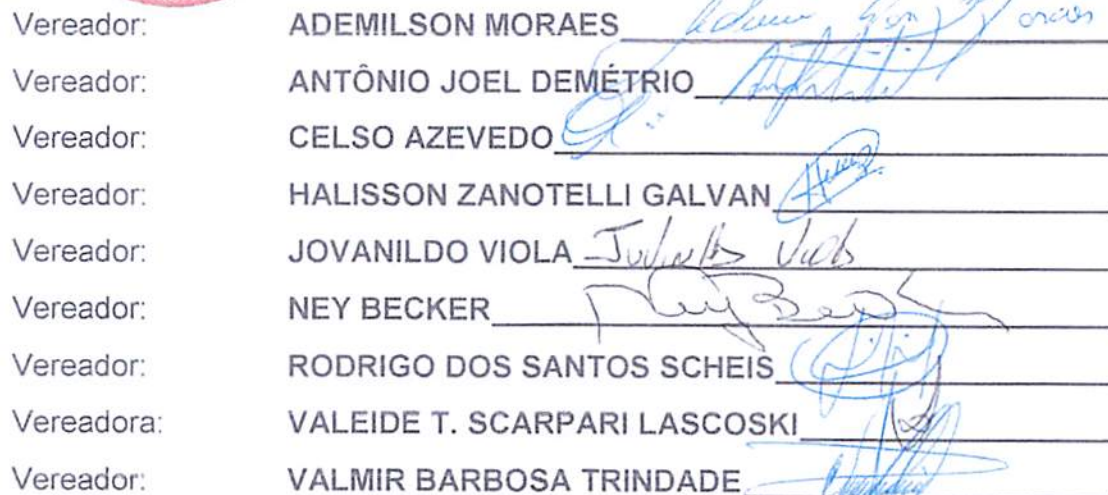 Vereador: ADEMILSON MORAES
Vereador: ANTÔNIO JOEL DEMÉTRIO
Vereador: CELSO AZEVEDO
Vereador: HALISSON ZANOTELLI GALVAN
Vereador: JOVANILDO VIOLA
Vereador: NEY BECKER Ney Becker
Vereador: RODRIGO DOS SANTOS SCHEIS
Vereadora: VALEIDE T. SCARPARI LASCOSKI
Vereador: VALMIR BARBOSA TRINDADE